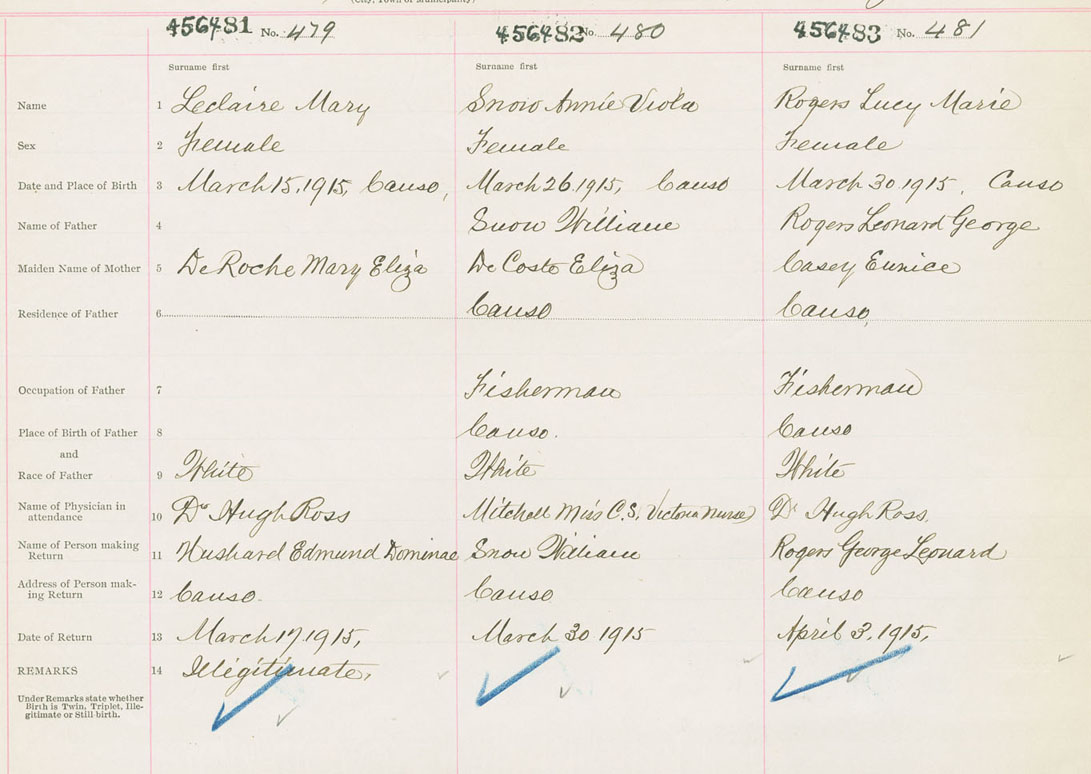 (City, Town or Municipality)
456481 No. 479 456482 No. 480 456483 No. 481
Surname first Surname first Surname first
Name 1 Leclaire Mary Snow Annie Viola Rogers Lucy Marie
Sex 2 Female Female Female
Date and Place of Birth 3 March 15, 1915, Canso, March 26, 1915, Canso March 30 1915, Canso
Name of Father 4 Snow William Rogers Leonard George
Maiden Name of Mother 5 De Roche Mary Eliza De Coste Eliza Casey Eunice
Residence of Father 6 Canso Canso,
Occupation of Father 7 Fisherman Fisherman
Place of Birth of Father 8 Canso. Canso
and
Race of Father 9 White White White
Name of Physician in
attendance 10 Dr Hugh Ross Mitchell Miss C.S. (Victoria Nurse) Dr Hugh Ross.
Name of Person making
Return 11 Hushard Edmund Dominae Snow William Rogers George Leonard
Address of Person mak-
ing Return 12 Canso. Canso Canso
Date of Return 13 March 17, 1915, March 30 1915 April 3, 1915,
REMARKS 14 Illegitimate,
Under Remarks state whether
Birth is Twin, Triplet, Ille-
gitimate or Still birth.